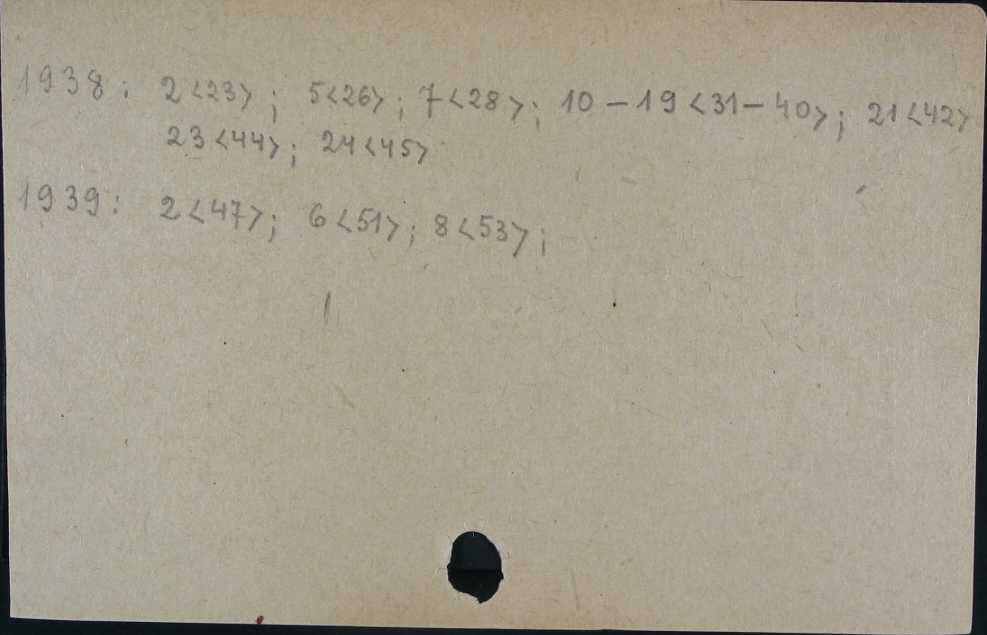 1938: 2<23>; 5<26>; 7<28>; 10-19<31-40>; 21<42>
23<44>; 24<45>
1939: 2<47>; 6<51>; 8<53>;